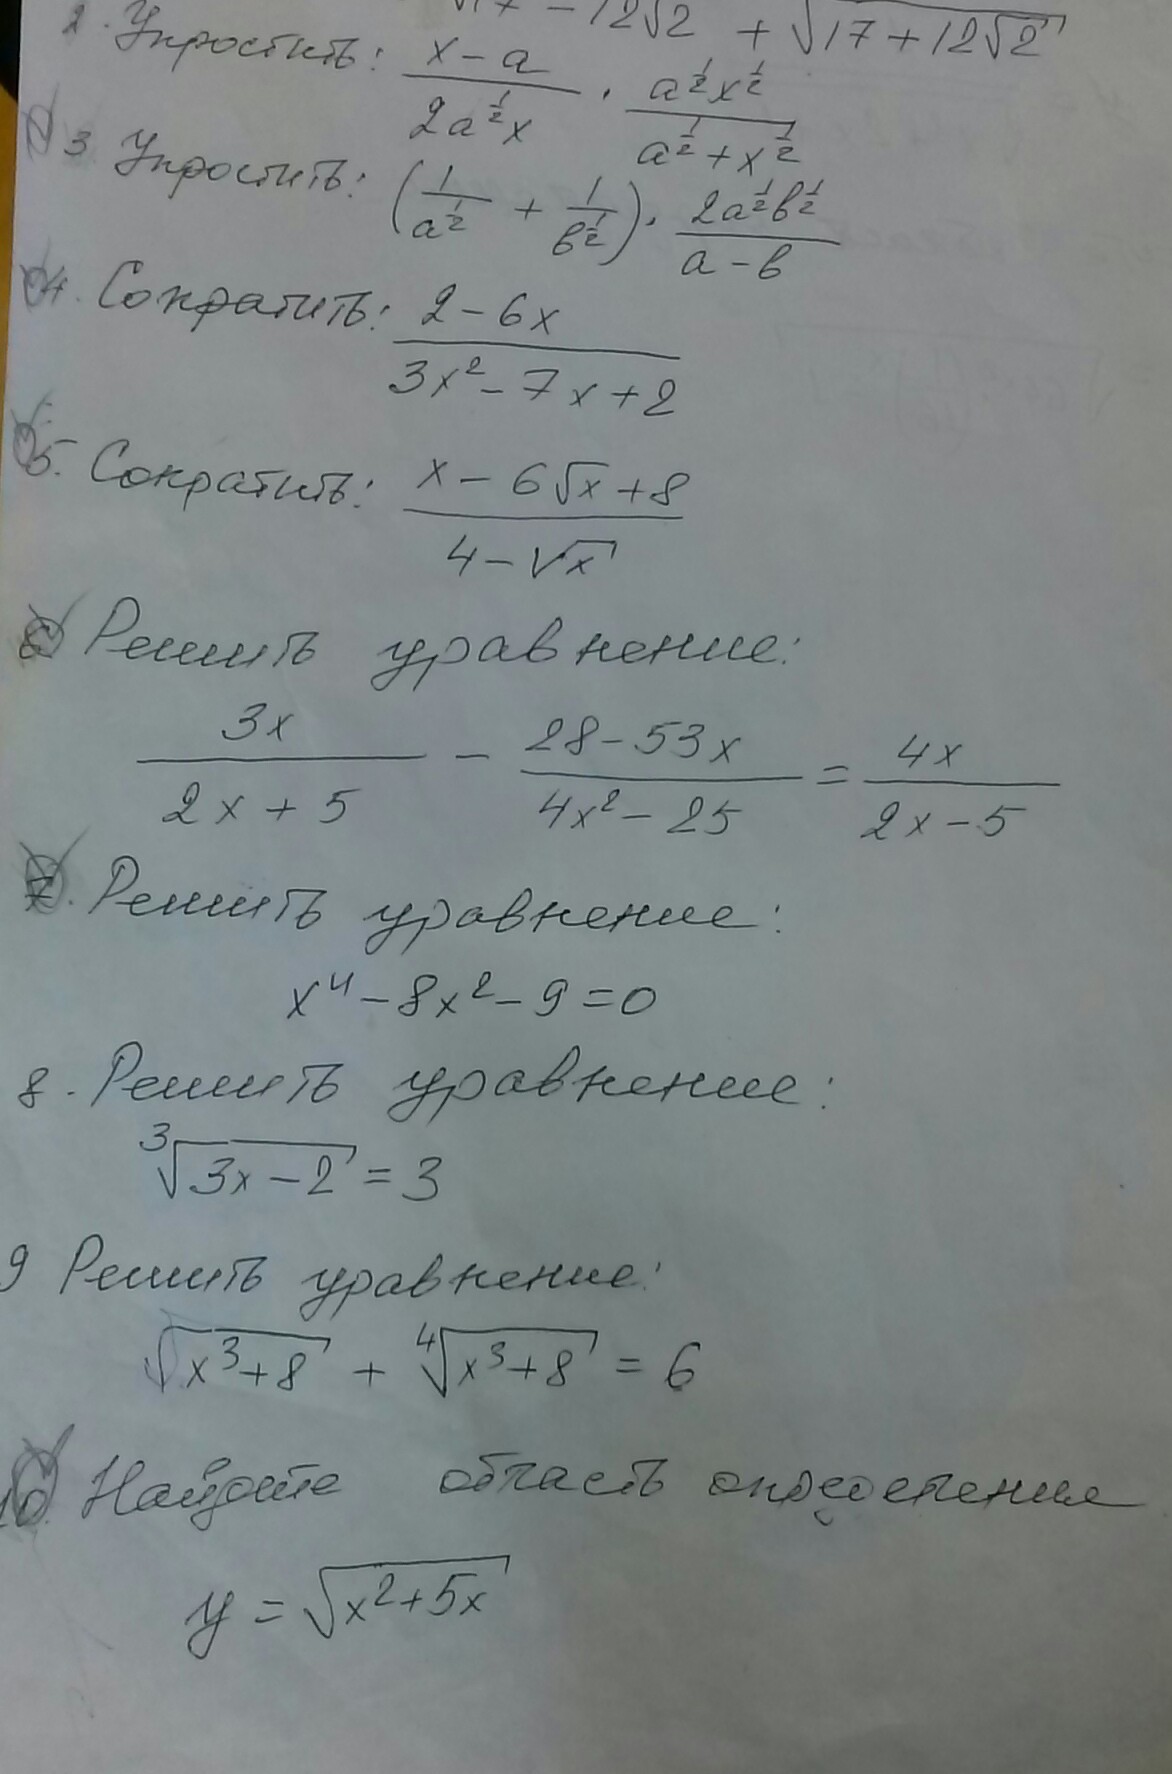 √17 - 12√2 + √(17 + 12√2)
2. Упростить: (x - a)/(2a^(1/2)x) · (a^(1/2)x^(1/2))/(a^(1/2) + x^(1/2))
3 Упростить: (1/a^(1/2) + 1/b^(1/2)) · (2a^(1/2)b^(1/2))/(a - b)
4. Сократить: (2 - 6x)/(3x² - 7x + 2)
5. Сократить: (x - 6√x + 8)/(4 - √x)
6 Решить уравнение:
3x/(2x + 5) - (28 - 53x)/(4x² - 25) = 4x/(2x - 5)
7. Решить уравнение:
x⁴ - 8x² - 9 = 0
8. Решить уравнение:
∛(3x - 2) = 3
9 Решить уравнение:
√(x³ + 8) + ∜(x³ + 8) = 6
10 Найдите область определения
y = √(x² + 5x)